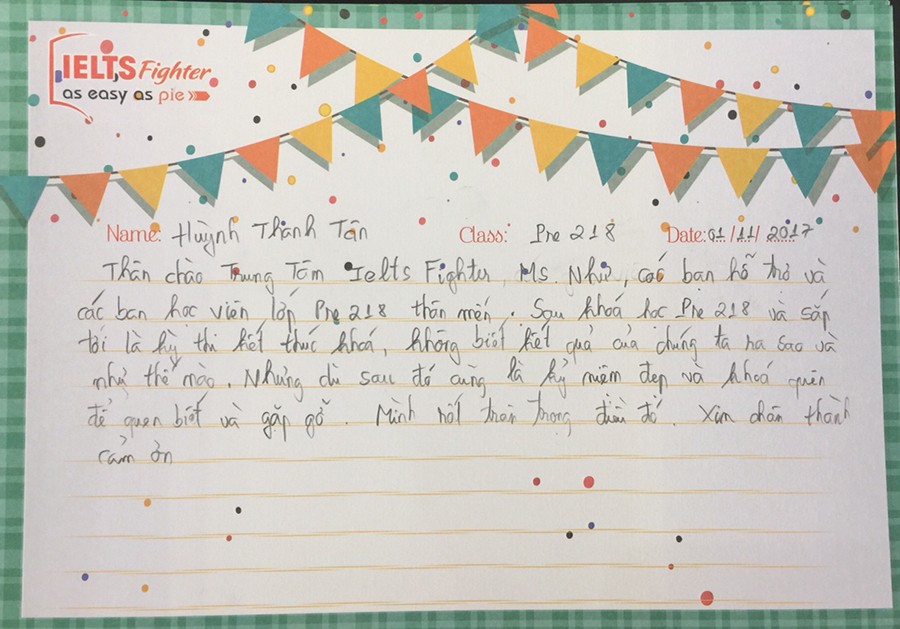 IELTS Fighter
as easy as pie
Name: Huỳnh Thành Tân Class: Pre 218 Date: 01/11/2017
Thân chào Trung Tâm Ielts Fighter, Ms. Như, các bạn hỗ trợ và
các bạn học viên lớp Pre 218 thân mến. Sau khoá học Pre 218 và sắp
tới là kỳ thi kết thúc khoá, không biết kết quả của chúng ta ra sao và
như thế nào. Nhưng dù sau đó cũng là kỷ niệm đẹp và khoá quên
để quen biết và gặp gỡ. Mình rất trân trọng điều đó. Xin chân thành
cảm ơn